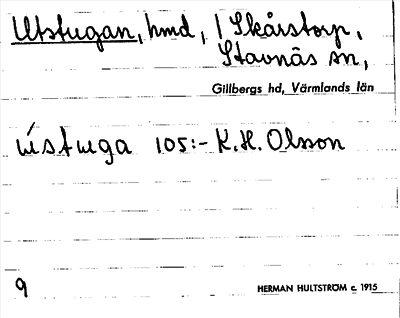 Utstugan, hmd, / Skårstorp,
Stavnäs sn,
Gillbergs hd, Värmlands län
ústuga 105:- K.H. Olsson
9
HERMAN HULTSTRÖM c. 1915